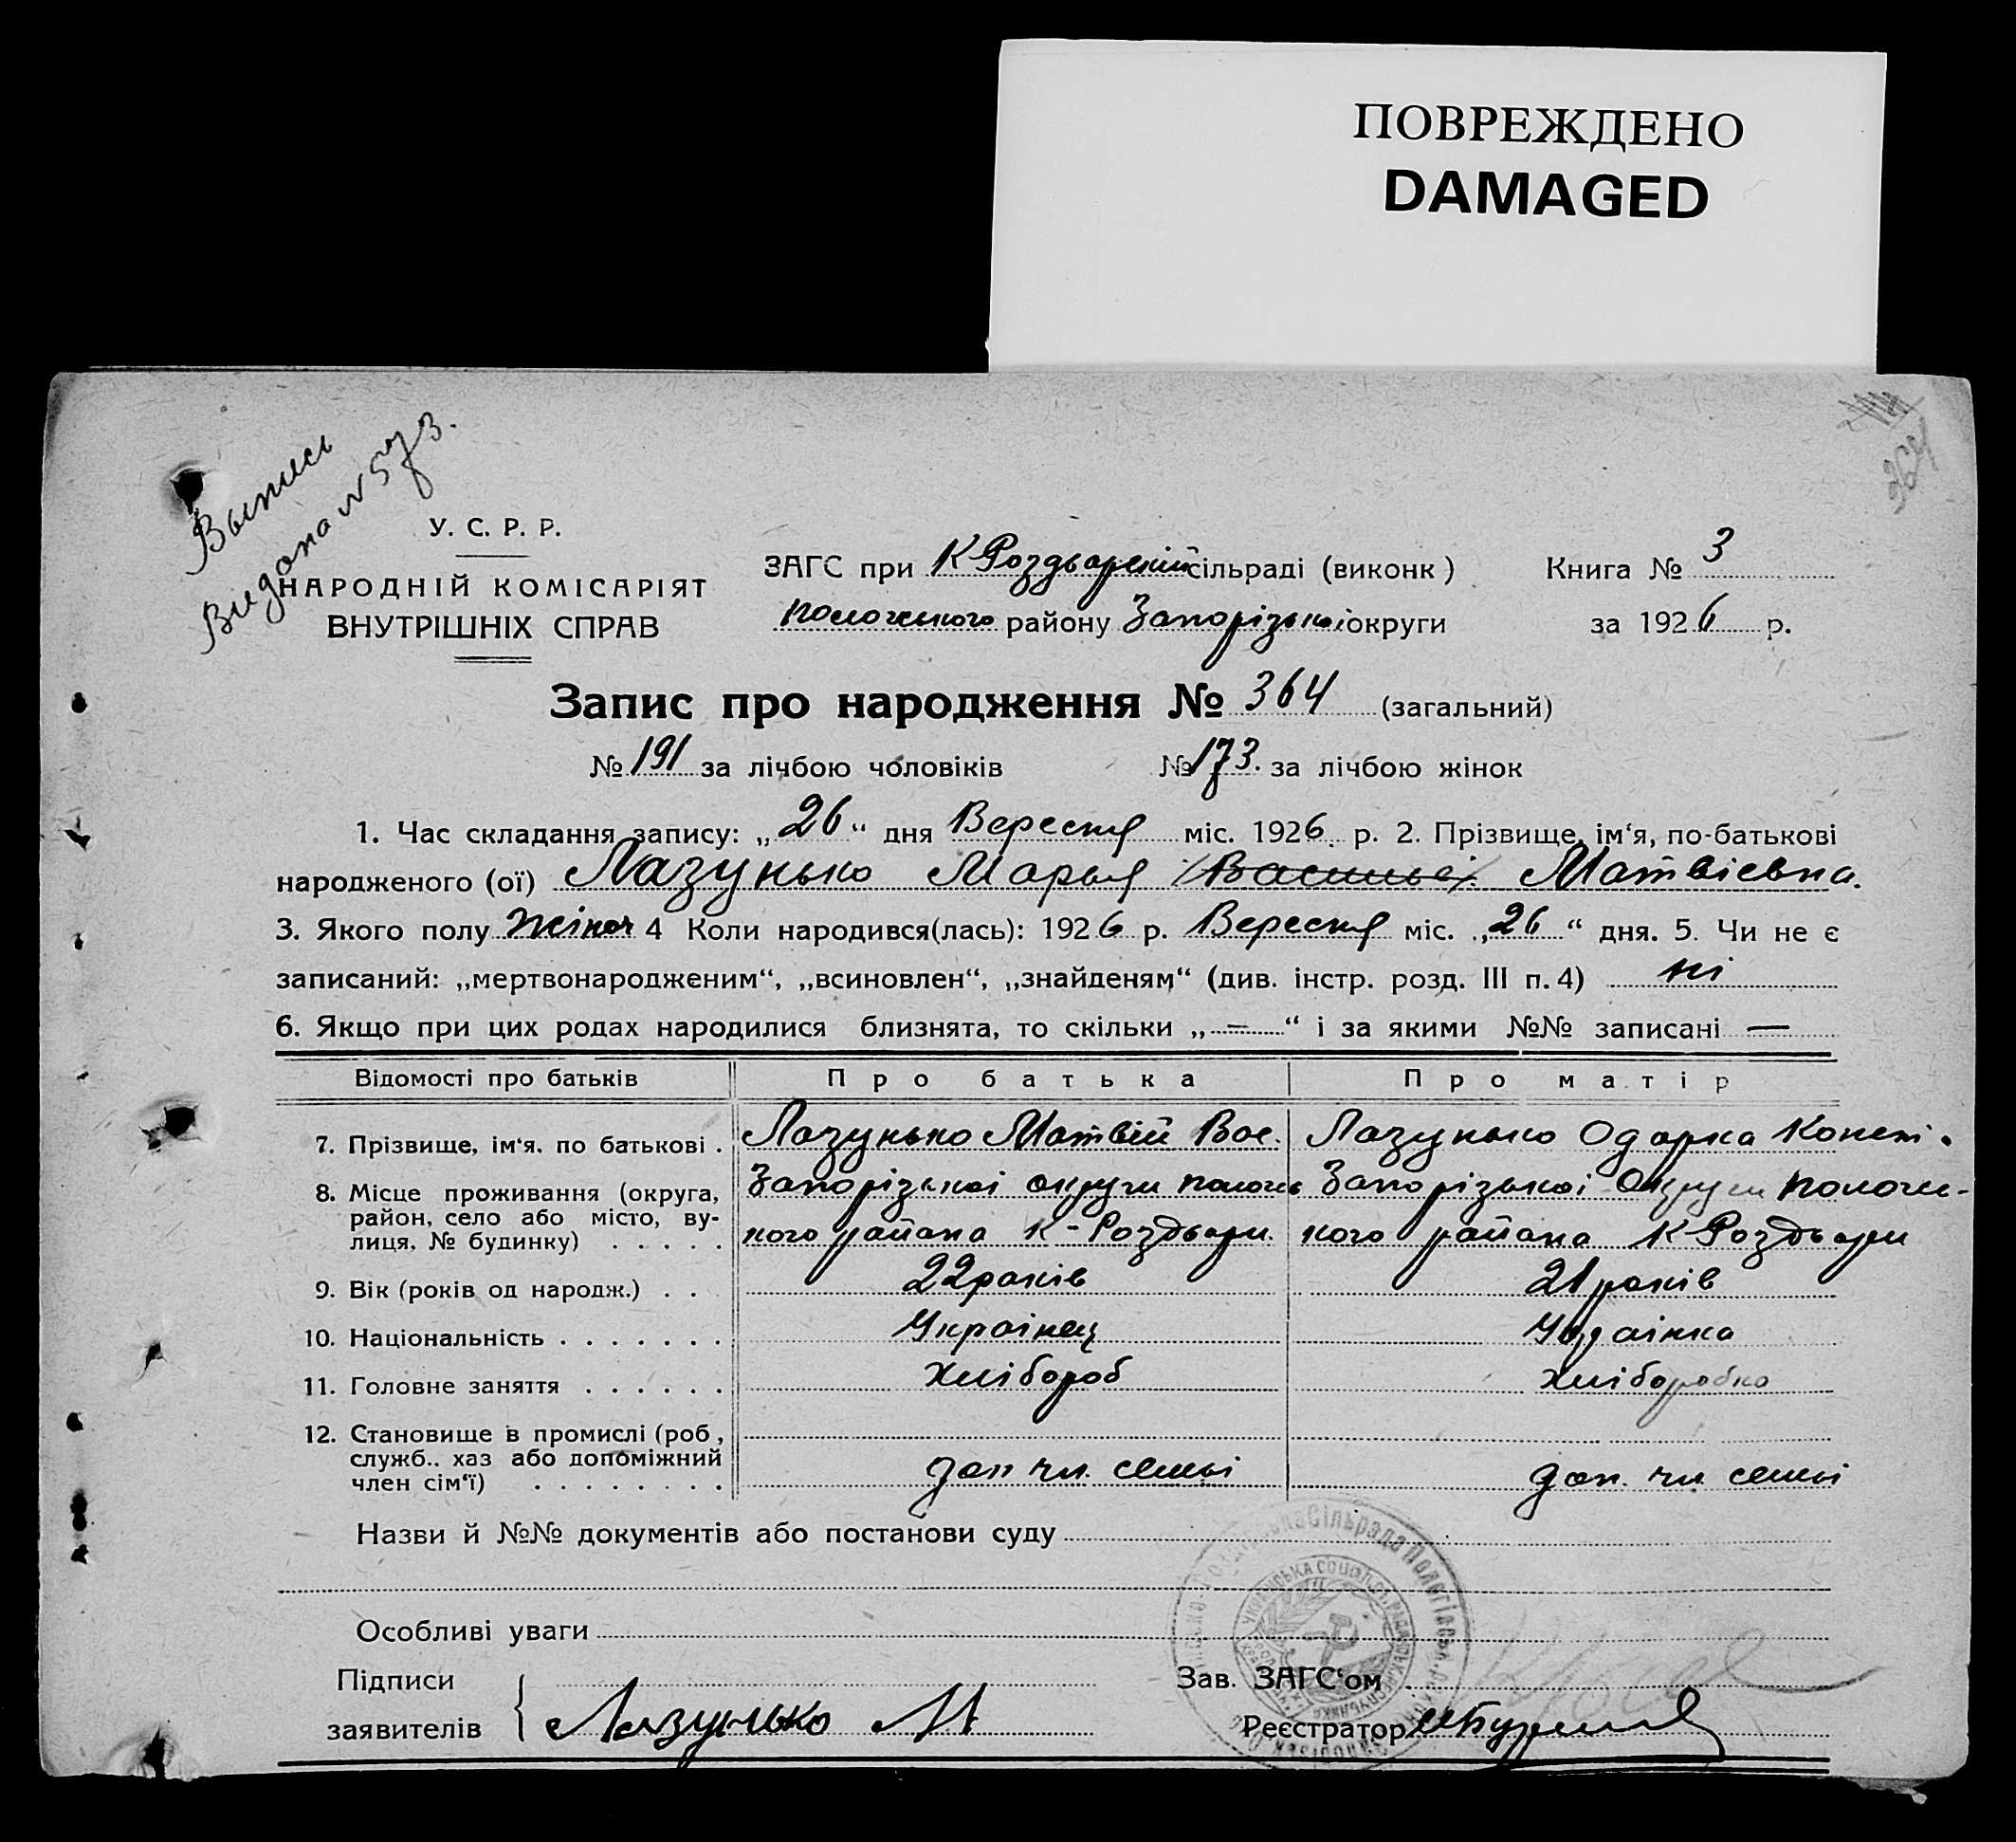 ПОВРЕЖДЕНО
DAMAGED
Выпись
Видана N 573.
364
У. С. Р. Р.
НАРОДНІЙ КОМІСАРІЯТ
ВНУТРІШНІХ СПРАВ
ЗАГС при К Роздорській сільраді (виконк) Книга № 3
пологського району Запорізькоі округи за 1926 р.
Запис про народження № 364 (загальний)
№ 191 за лічбою чоловіків № 173. за лічбою жінок
1. Час складання запису: „26“ дня Вересня міс. 1926 р. 2. Прізвище, ім‘я, по-батькові
народженого (ої) Лазунько Марья (Василье) Матвієвна.
3. Якого полу жіноч 4 Коли народився(лась): 1926 р. Вересня міс. „26“ дня. 5. Чи не є
записаний: „мертвонародженим“, „всиновлен“, „знайденям“ (див. інстр. розд. III п. 4) ні
6. Якщо при цих родах народилися близнята, то скільки „—“ і за якими №№ записані —
Відомості про батьків Про батька Про матір
7. Прізвище, ім‘я. по батькові . Лазунько Матвій Вас. Лазунько Одарка Конст.
8. Місце проживання (округа, Запорізькоі округи пологсь Запорізькоі Округи пологсь-
район, село або місто, ву-
лиця, № будинку) . . . . . кого района К-Роздори. кого района К Роздори
9. Вік (років од народж.) . . 22 років 21 років
10. Національність . . . . . . . Українец Українка
11. Головне заняття . . . . . . Хлібороб Хліборобка
12. Становище в промислі (роб ,
служб.. хаз або допоміжний
член сім‘ї) . . . . . . . . доп чл. семьі доп. чл семьі
Назви й №№ документів або постанови суду
Особливі уваги
Підписи
заявителів Лазунько М
Зав. ЗАГС‘ом
Реєстратор
Сільрада Пологівськ.